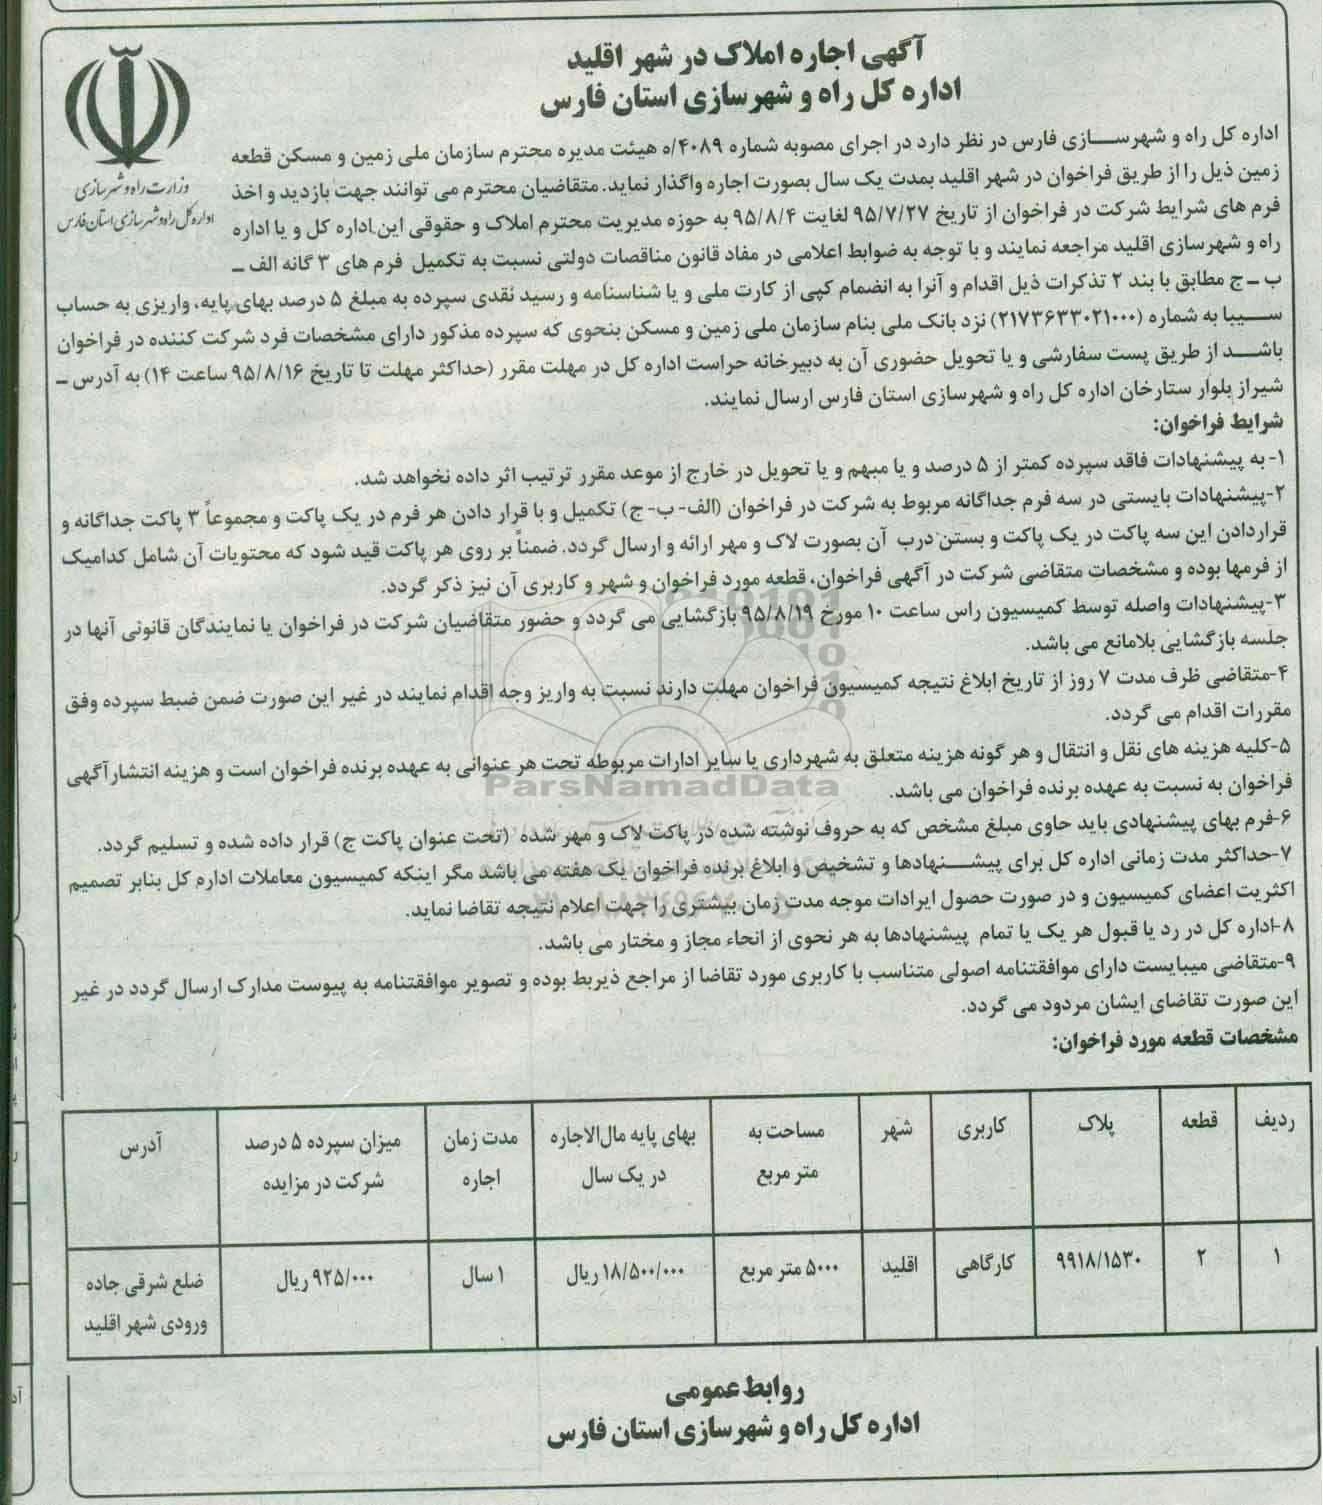 آگهی اجاره املاک در شهر اقلید
اداره کل راه و شهرسازی استان فارس
وزارت راه و شهرسازی
اداره کل راه و شهرسازی استان فارس
اداره کل راه و شهرســازی فارس در نظر دارد در اجرای مصوبه شماره ۴۰۸۹/ه هیئت مدیره محترم سازمان ملی زمین و مسکن قطعه
زمین ذیل را از طریق فراخوان در شهر اقلید بمدت یک سال بصورت اجاره واگذار نماید. متقاضیان محترم می توانند جهت بازدید و اخذ
فرم های شرایط شرکت در فراخوان از تاریخ ۹۵/۷/۲۷ لغایت ۹۵/۸/۴ به حوزه مدیریت محترم املاک و حقوقی این اداره کل و یا اداره
راه و شهرسازی اقلید مراجعه نمایند و با توجه به ضوابط اعلامی در مفاد قانون مناقصات دولتی نسبت به تکمیل فرم های ۳ گانه الف ـ
ب ـ ج مطابق با بند ۲ تذکرات ذیل اقدام و آنرا به انضمام کپی از کارت ملی و یا شناسنامه و رسید نقدی سپرده به مبلغ ۵ درصد بهای پایه، واریزی به حساب
ســیبا به شماره (۲۱۷۳۶۳۳۰۲۱۰۰۰) نزد بانک ملی بنام سازمان ملی زمین و مسکن بنحوی که سپرده مذکور دارای مشخصات فرد شرکت کننده در فراخوان
باشــد از طریق پست سفارشی و یا تحویل حضوری آن به دبیرخانه حراست اداره کل در مهلت مقرر (حداکثر مهلت تا تاریخ ۹۵/۸/۱۶ ساعت ۱۴) به آدرس ـ
شیراز بلوار ستارخان اداره کل راه و شهرسازی استان فارس ارسال نمایند.
شرایط فراخوان:
۱- به پیشنهادات فاقد سپرده کمتر از ۵ درصد و یا مبهم و یا تحویل در خارج از موعد مقرر ترتیب اثر داده نخواهد شد.
۲-پیشنهادات بایستی در سه فرم جداگانه مربوط به شرکت در فراخوان (الف- ب- ج) تکمیل و با قرار دادن هر فرم در یک پاکت و مجموعاً ۳ پاکت جداگانه و
قراردادن این سه پاکت در یک پاکت و بستن درب آن بصورت لاک و مهر ارائه و ارسال گردد. ضمناً بر روی هر پاکت قید شود که محتویات آن شامل کدامیک
از فرمها بوده و مشخصات متقاضی شرکت در آگهی فراخوان، قطعه مورد فراخوان و شهر و کاربری آن نیز ذکر گردد.
۳-پیشنهادات واصله توسط کمیسیون راس ساعت ۱۰ مورخ ۹۵/۸/۱۹ بازگشایی می گردد و حضور متقاضیان شرکت در فراخوان یا نمایندگان قانونی آنها در
جلسه بازگشایی بلامانع می باشد.
۴-متقاضی ظرف مدت ۷ روز از تاریخ ابلاغ نتیجه کمیسیون فراخوان مهلت دارند نسبت به واریز وجه اقدام نمایند در غیر این صورت ضمن ضبط سپرده وفق
مقررات اقدام می گردد.
۵-کلیه هزینه های نقل و انتقال و هر گونه هزینه متعلق به شهرداری یا سایر ادارات مربوطه تحت هر عنوانی به عهده برنده فراخوان است و هزینه انتشار آگهی
فراخوان به نسبت به عهده برنده فراخوان می باشد.
ParsNamadData
۶-فرم بهای پیشنهادی باید حاوی مبلغ مشخص که به حروف نوشته شده در پاکت لاک و مهر شده (تحت عنوان پاکت ج) قرار داده شده و تسلیم گردد.
۷-حداکثر مدت زمانی اداره کل برای پیشــنهادها و تشخیص و ابلاغ برنده فراخوان یک هفته می باشد مگر اینکه کمیسیون معاملات اداره کل بنابر تصمیم
اکثریت اعضای کمیسیون و در صورت حصول ایرادات موجه مدت زمان بیشتری را جهت اعلام نتیجه تقاضا نماید.
۸-اداره کل در رد یا قبول هر یک یا تمام پیشنهادها به هر نحوی از انحاء مجاز و مختار می باشد.
۹-متقاضی میبایست دارای موافقتنامه اصولی متناسب با کاربری مورد تقاضا از مراجع ذیربط بوده و تصویر موافقتنامه به پیوست مدارک ارسال گردد در غیر
این صورت تقاضای ایشان مردود می گردد.
مشخصات قطعه مورد فراخوان:
ردیف قطعه پلاک کاربری شهر مساحت به متر مربع بهای پایه مال‌الاجاره در یک سال مدت زمان اجاره میزان سپرده ۵ درصد شرکت در مزایده آدرس
۱ ۲ ۹۹۱۸/۱۵۳۰ کارگاهی اقلید ۵۰۰۰ متر مربع ۱۸/۵۰۰/۰۰۰ ریال ۱ سال ۹۲۵/۰۰۰ ریال ضلع شرقی جاده ورودی شهر اقلید
روابط عمومی
اداره کل راه و شهرسازی استان فارس